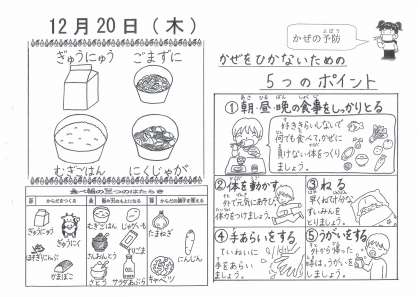 12月20日（木）
ぎゅうにゅう
ごまずに
むぎごはん
にくじゃが
食べ物の三つのはたらき
赤 からだをつくる
黄 熱や力のもとになる
緑 からだの調子を整える
ぎゅうにゅう
ぎゅうにく
ほそぎりこんぶ
かまぼこ
むぎごはん
じゃがいも
さんおんとう
ごま
さとう
サラダあぶら
たまねぎ
にんじん
キャベツ
かぜの予防
よぼう
かぜをひかないための
5つのポイント
①朝・昼・晩の食事をしっかりとる
好ききらいしないで
何でも食べて、かぜに
負けない体をつくり
ましょう。
②体を動かす
外で元気にあそび、
体力をつけましょう。
③ねる
早くねて十分な
すいみんを
とりましょう。
④手あらいをする
ていねいに
手をあらい
ましょう。
⑤うがいをする
外から帰った
時は、うがいを
しましょう。